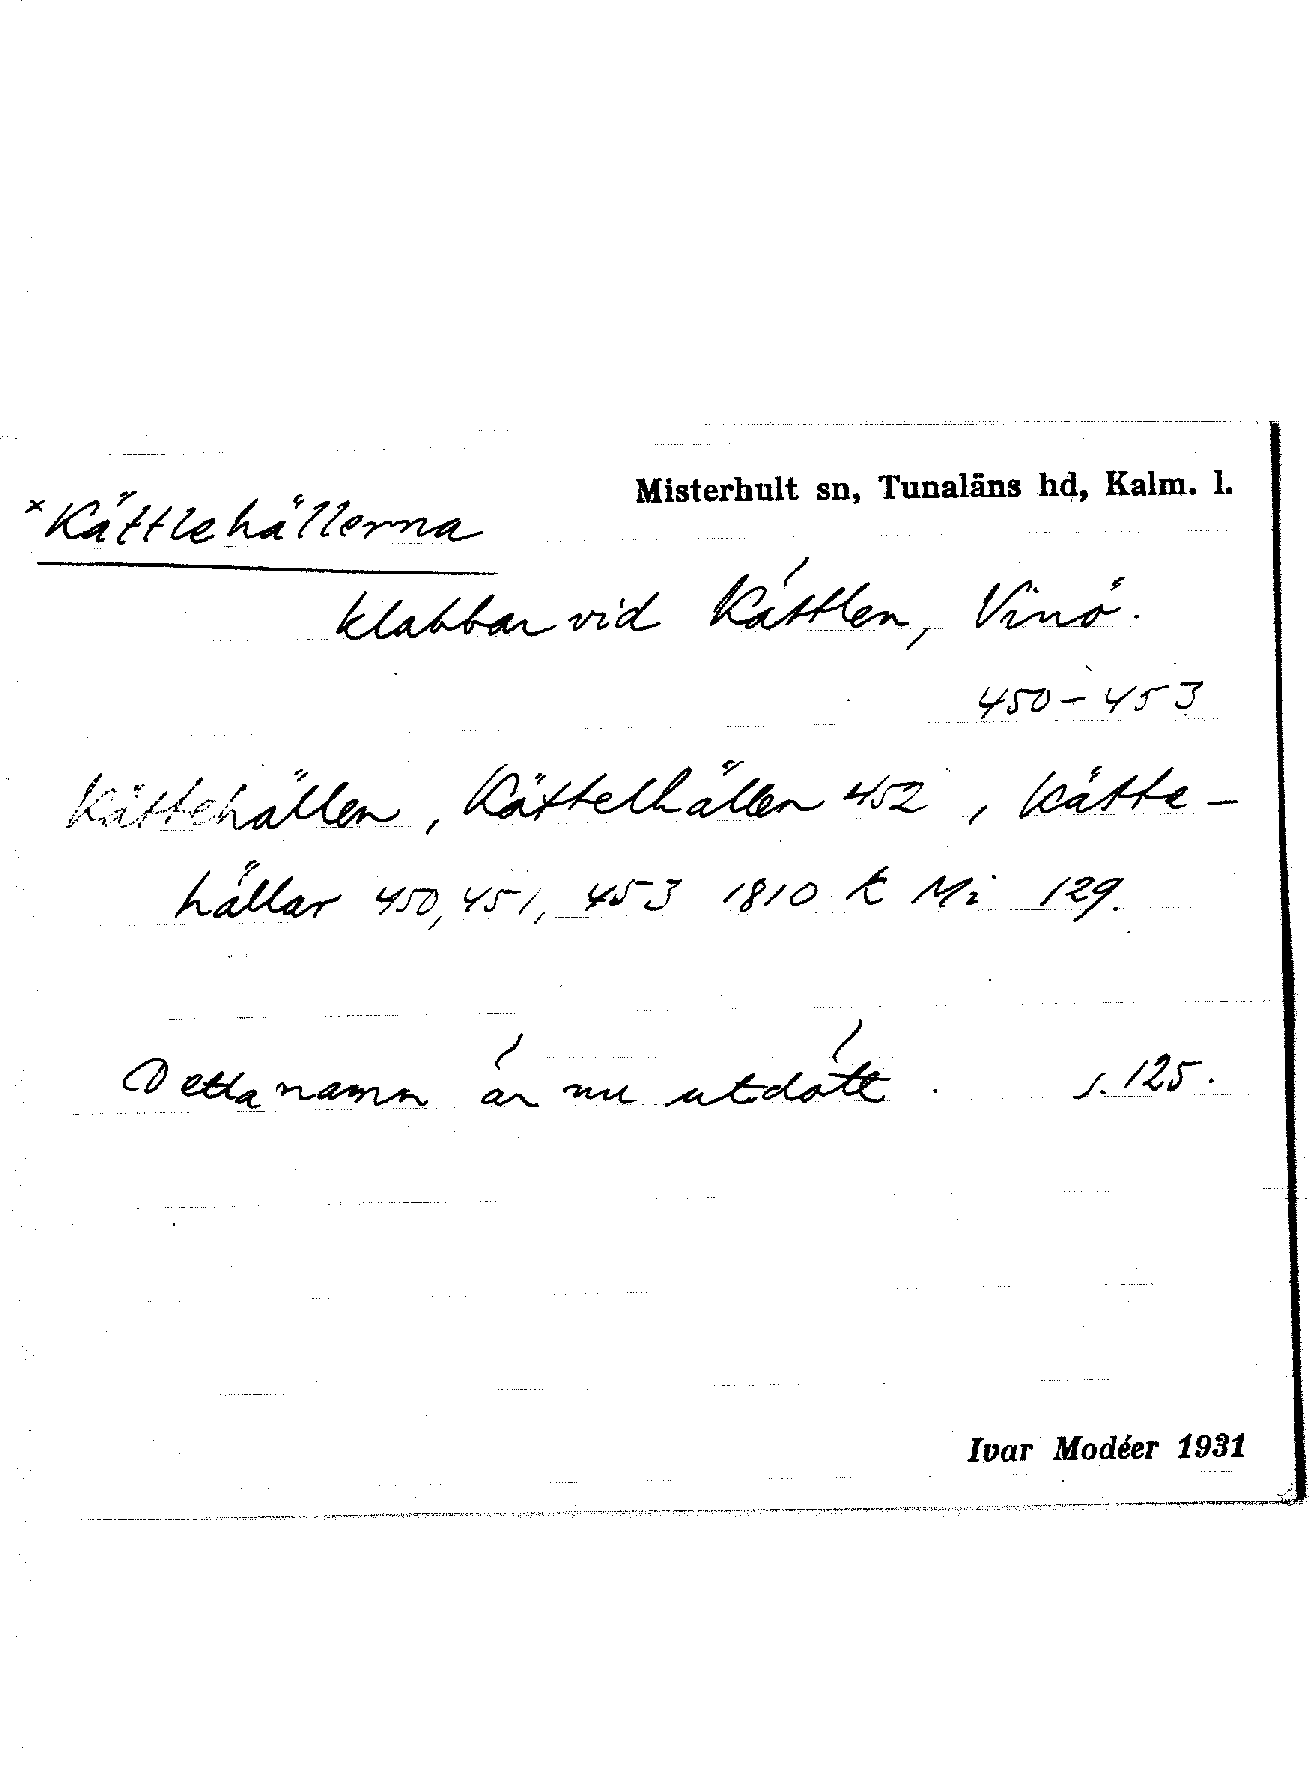 Misterhult sn, Tunaläns hd, Kalm. l.
×Kättlehällerna
klabbar vid Kättlen, Vinö.
450–453
Kättehällen, Kättelhällen 452, Kätte-
hällar 450, 451, 453 1810 k Mi 129.
Detta namn är nu utdött. s. 125.
Ivar Modéer 1931